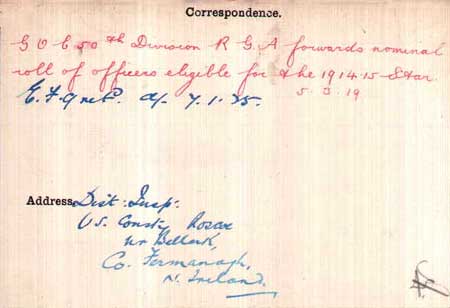 Correspondence.
G O C 50th Division R G A forwards nominal
roll of officers eligible for the 1914.15 Star.
5.3.19
7.1.35.
Address. Dist: Insp:
Us. Consty Roscor
nr Belleek,
Co. Fermanagh,
N. Ireland.